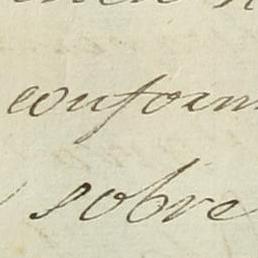 conform
sobre